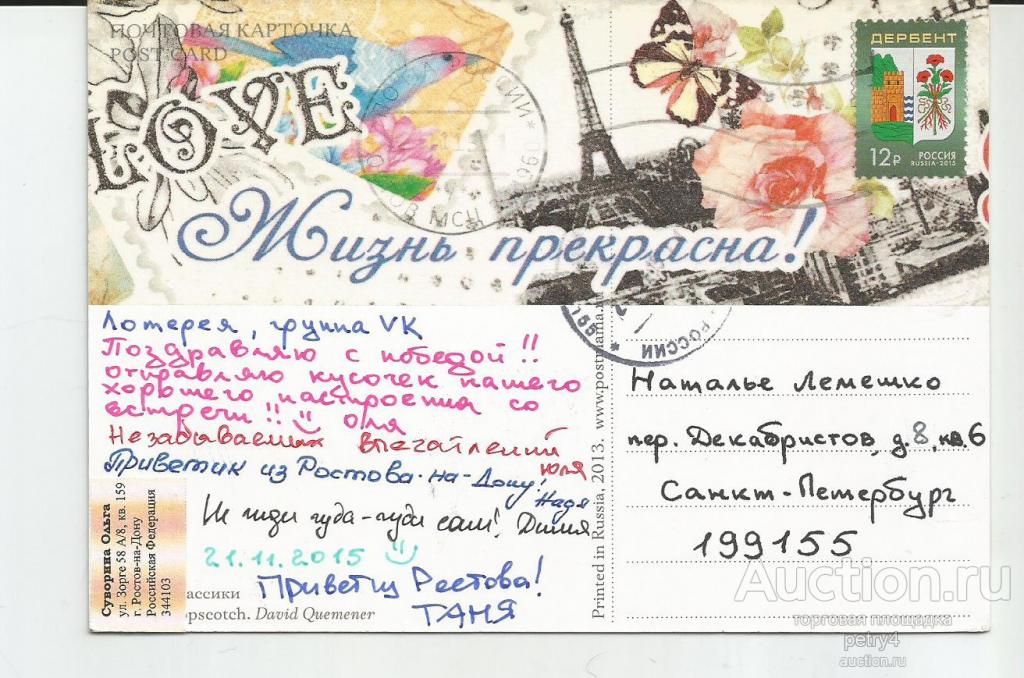 ПОЧТОВАЯ КАРТОЧКА
POST CARD
LOVE
Жизнь прекрасна!
ДЕРБЕНТ
12 Р РОССИЯ
RUSSIA·2015
Лотерея, группа VK
Поздравляю с победой!!
отправляю кусочек нашего
хорошего настроения со
встречи!! Оля
Незабываемых впечатлений
Юля
Приветик из Ростова-на-Дону!
Надя
Не жди чуда-чуди сам! Дима
21.11.2015
Привет из Ростова!
ТАНЯ
Суворина Ольга
ул. Зорге 58 А/8, кв. 159
г. Ростов-на-Дону
Российская Федерация
344103
ассики
opscotch. David Quemener
Printed in Russia, 2013. www.postmama.
РОССИИ
Наталье Лемешко
пер. Декабристов, д. 8, кв. 6
Санкт-Петербург
199155
Auction.ru
торговая площадка
petry4
auction.ru